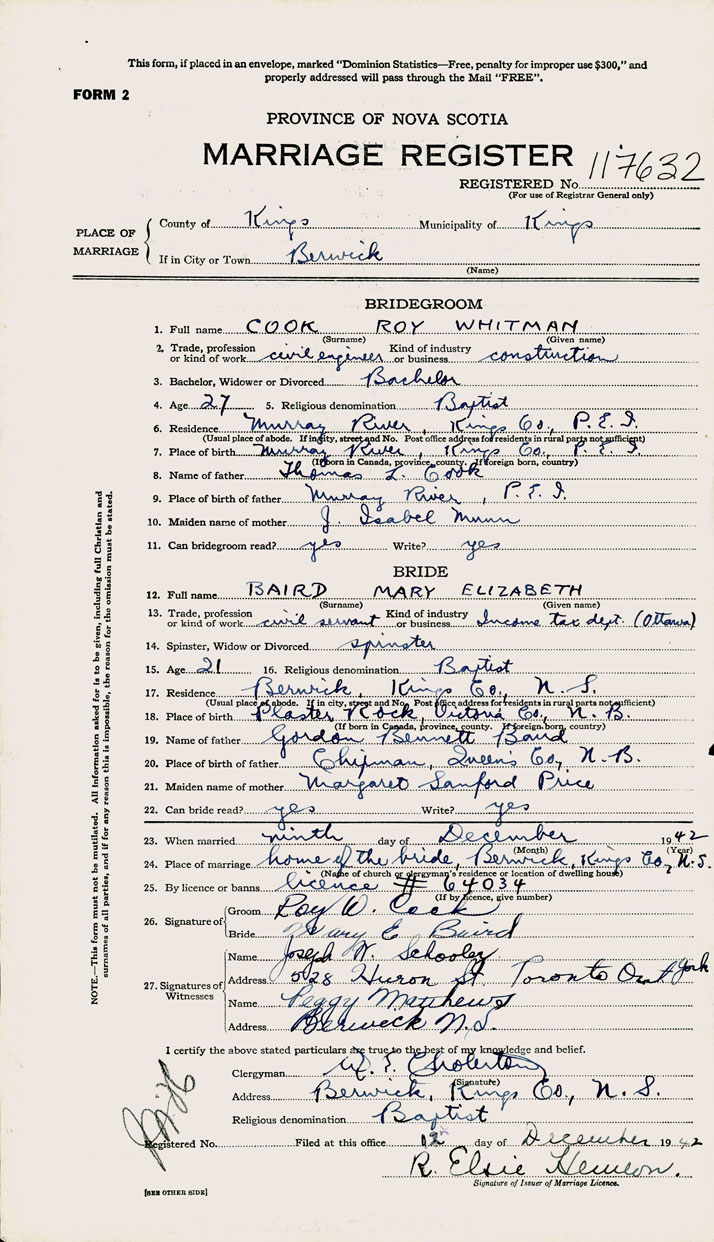 This form, if placed in an envelope, marked "Dominion Statistics—Free, penalty for improper use $300," and
properly addressed will pass through the Mail "FREE".
FORM 2
PROVINCE OF NOVA SCOTIA
MARRIAGE REGISTER
REGISTERED No. 117632
(For use of Registrar General only)
PLACE OF MARRIAGE
County of Kings Municipality of Kings
If in City or Town Berwick
(Name)
BRIDEGROOM
1. Full name COOK ROY WHITMAN
(Surname) (Given name)
2. Trade, profession or kind of work civil engineer Kind of industry or business construction
3. Bachelor, Widower or Divorced Bachelor
4. Age 27 5. Religious denomination Baptist
6. Residence Murray River, Kings Co., P.E.I.
(Usual place of abode. If in city, street and No. Post office address for residents in rural parts not sufficient)
7. Place of birth Murray River, Kings Co., P.E.I.
(If born in Canada, province, county. If foreign born, country)
8. Name of father Thomas L. Cook
9. Place of birth of father Murray River, P.E.I.
10. Maiden name of mother J. Isabel Munn
11. Can bridegroom read? yes Write? yes
BRIDE
12. Full name BAIRD MARY ELIZABETH
(Surname) (Given name)
13. Trade, profession or kind of work civil servant Kind of industry or business Income tax dept. (Ottawa)
14. Spinster, Widow or Divorced spinster
15. Age 21 16. Religious denomination Baptist
17. Residence Berwick, Kings Co., N.S.
(Usual place of abode. If in city, street and No. Post office address for residents in rural parts not sufficient)
18. Place of birth Plaster Rock, Victoria Co., N.B.
(If born in Canada, province, county. If foreign born, country)
19. Name of father Gordon Bennett Baird
20. Place of birth of father Chipman, Queens Co., N.B.
21. Maiden name of mother Margaret Sanford Price
22. Can bride read? yes Write? yes
23. When married ninth day of December 1942
(Month) (Year)
24. Place of marriage home of the bride, Berwick, Kings Co., N.S.
(Name of church or clergyman's residence or location of dwelling house)
25. By licence or banns licence # 64034
(If by licence, give number)
26. Signature of
Groom Roy W. Cook
Bride Mary E. Baird
27. Signatures of Witnesses
Name Joseph W. Schooley
Address 528 Huron St. Toronto Ont York
Name Peggy Matthews
Address Berwick N.S.
I certify the above stated particulars are true to the best of my knowledge and belief.
Clergyman W. E. Cholerton
(Signature)
Address Berwick, Kings Co., N.S.
Religious denomination Baptist
Registered No. Filed at this office 12 day of December 1942
R. Elsie
Signature of Issuer of Marriage Licence.
[SEE OTHER SIDE]
NOTE.—This form must not be mutilated. All information asked for is to be given, including full Christian and
surnames of all parties, and if for any reason this is impossible, the reason for the omission must be stated.